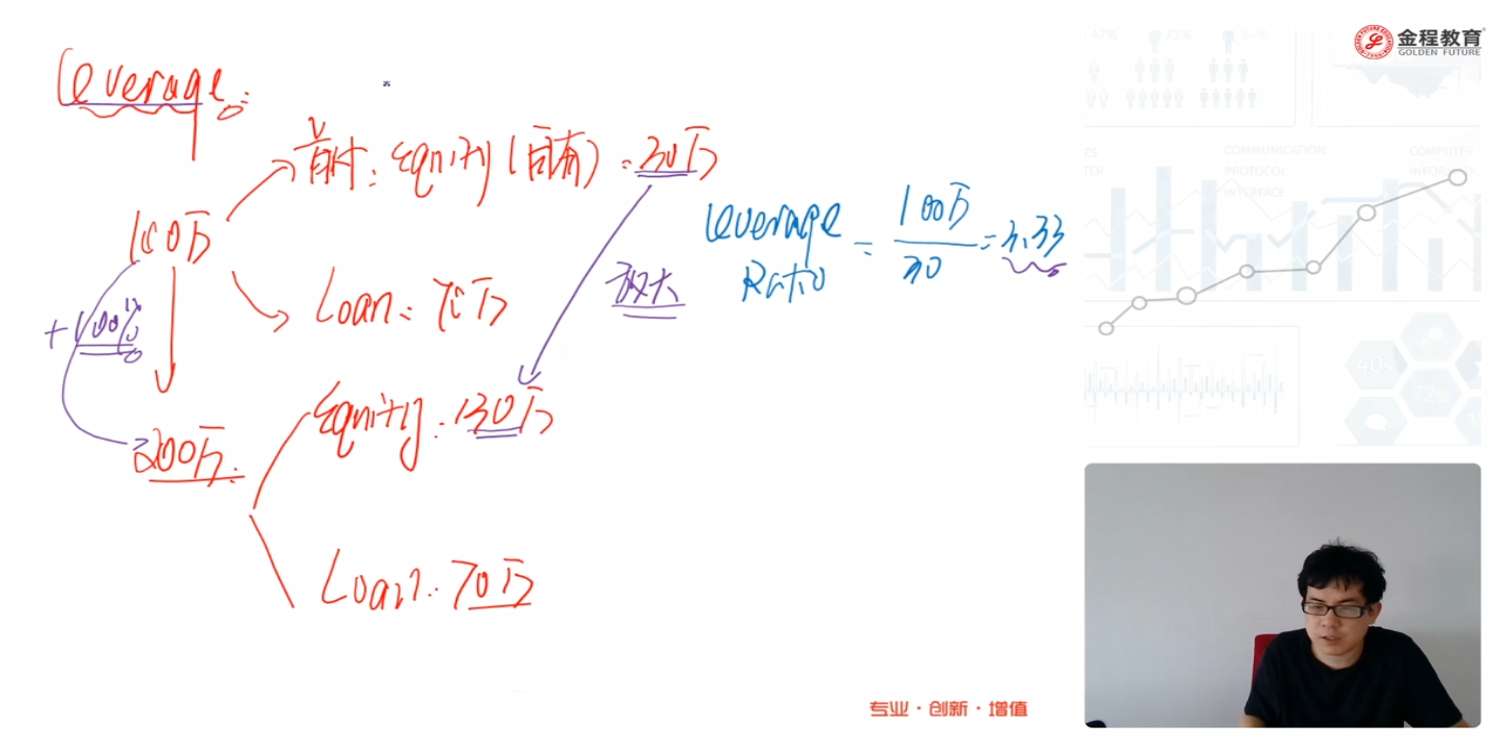 leverage:
首付: equity (自有) = 30万
100万
leverage Ratio = 100万 / 30 = 3.33
放大
Loan = 70万
+100%
equity: 130万
200万
Loan: 70万
金程教育
GOLDEN FUTURE
COMMUNICATION
PROTOCOL
40%
72%
专业·创新·增值